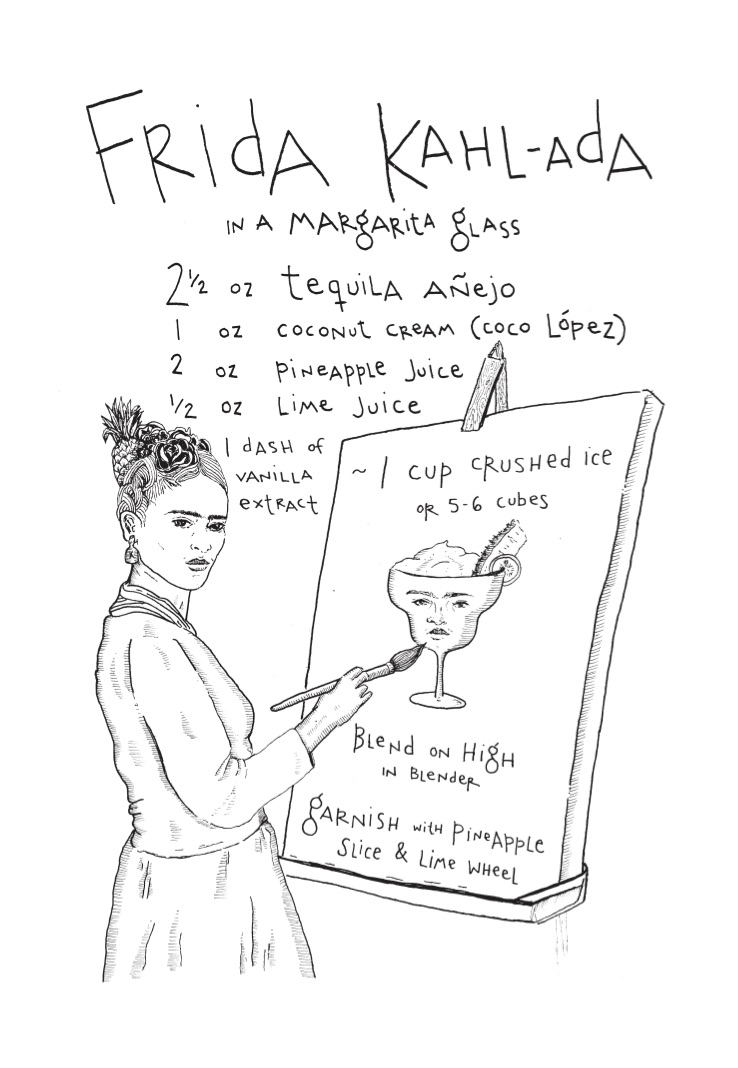 FRidA KAHL-AdA
iN A MARgARitA gLASS
2 1/2 oz tequiLA AÑejo
1 oz coconut cReAM (coco López)
2 oz piNeApple Juice
1/2 oz Lime Juice
1 dASH of
VANiLLA
extRAct
~ 1 cup cRusHed ice
oR 5-6 cubes
BLeNd oN HigH
iN BLeNdeR
gARNiSH witH piNeAppLe
SLice & Lime wHeeL